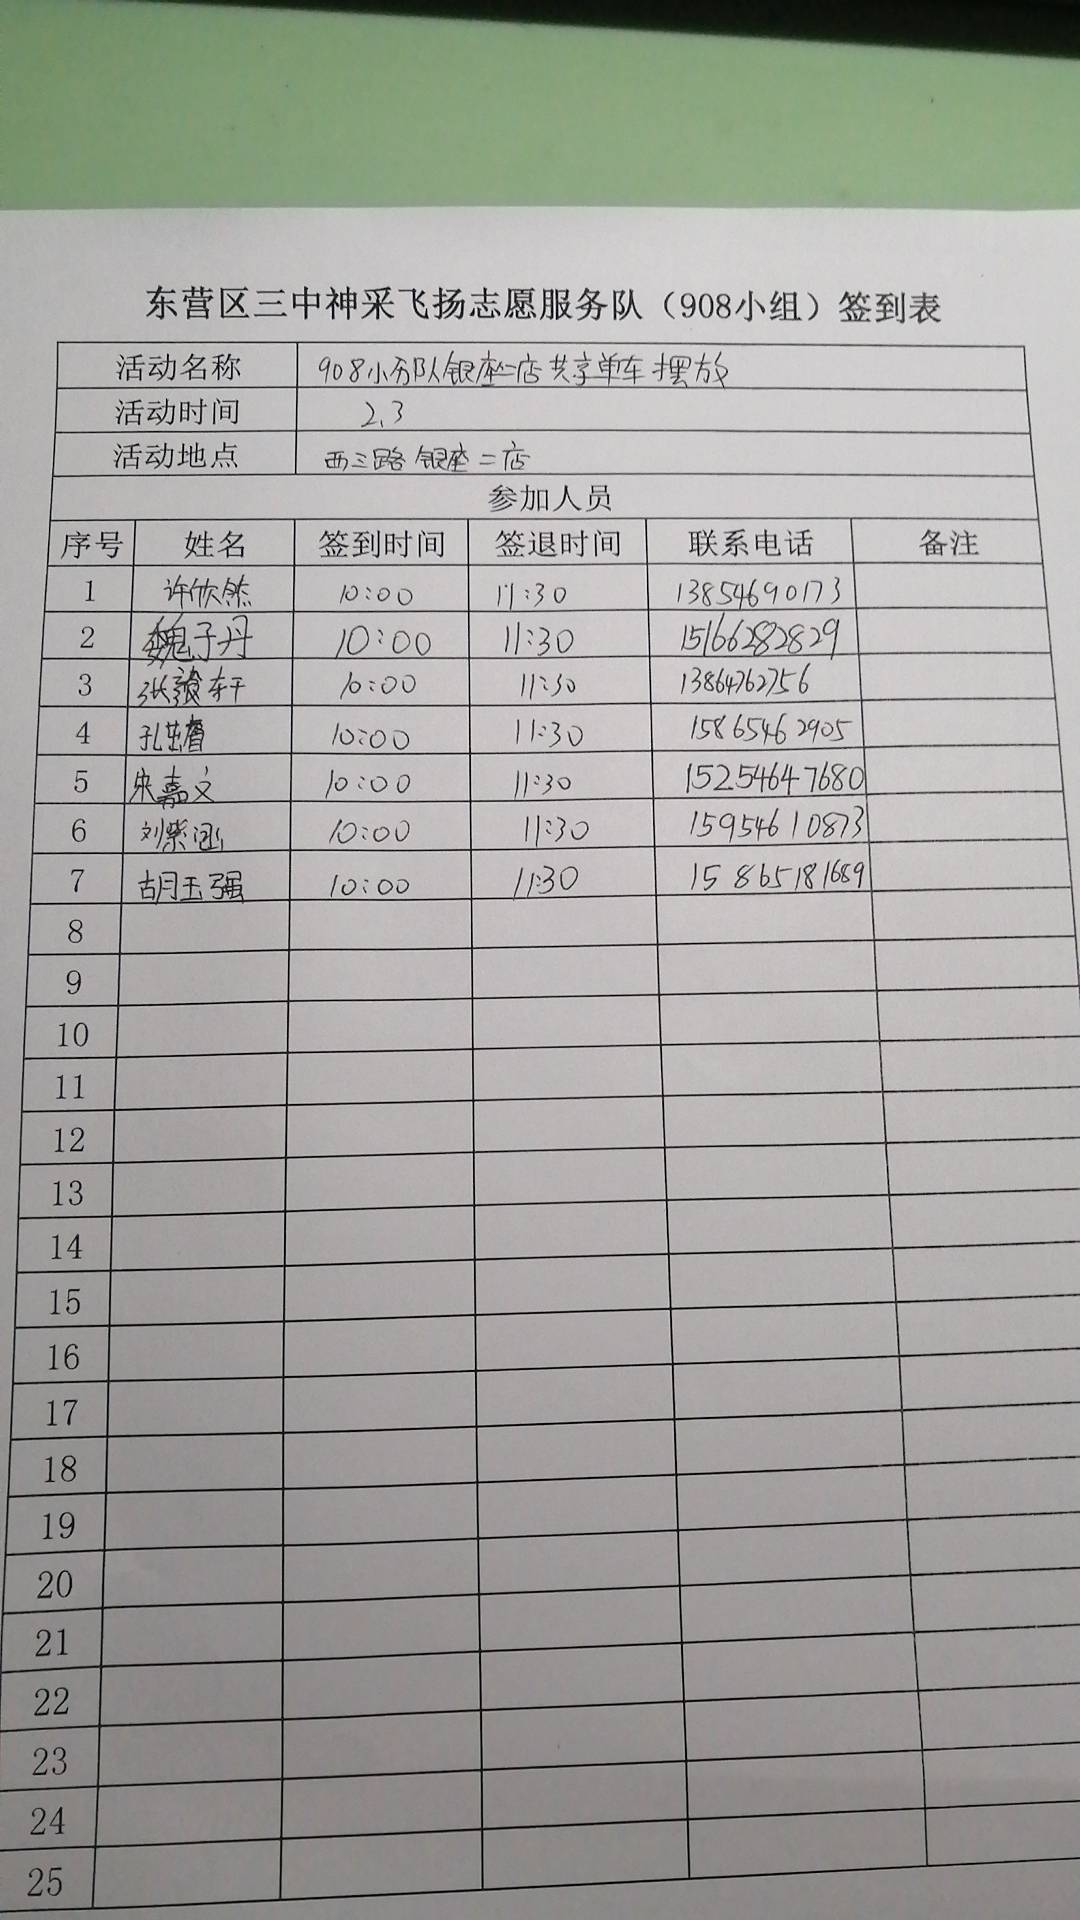 东营区三中神采飞扬志愿服务队（908小组）签到表
活动名称 908小分队银座二店共享单车摆放
活动时间 2.3
活动地点 西三路银座二店
参加人员
序号 姓名 签到时间 签退时间 联系电话 备注
1 许欣然 10:00 11:30 13854690173
2 魏子丹 10:00 11:30 15166282829
3 张轩 10:00 11:30 13864762756
4 孔睿 10:00 11:30 15865462905
5 宋嘉文 10:00 11:30 15254647680
6 刘紫涵 10:00 11:30 15954610873
7 胡玉强 10:00 11:30 15865181689
8
9
10
11
12
13
14
15
16
17
18
19
20
21
22
23
24
25